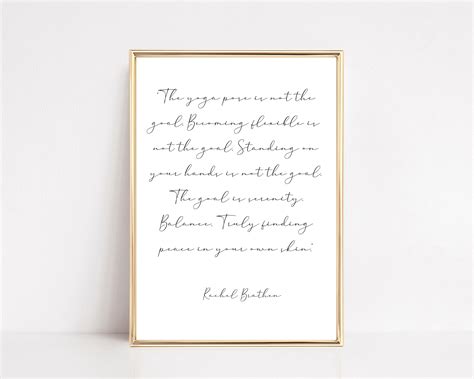 "The yoga pose is not the
goal. Becoming flexible is
not the goal. Standing on
your hands is not the goal.
The goal is serenity.
Balance. Truly finding
peace in your own skin."
Rachel Brathen